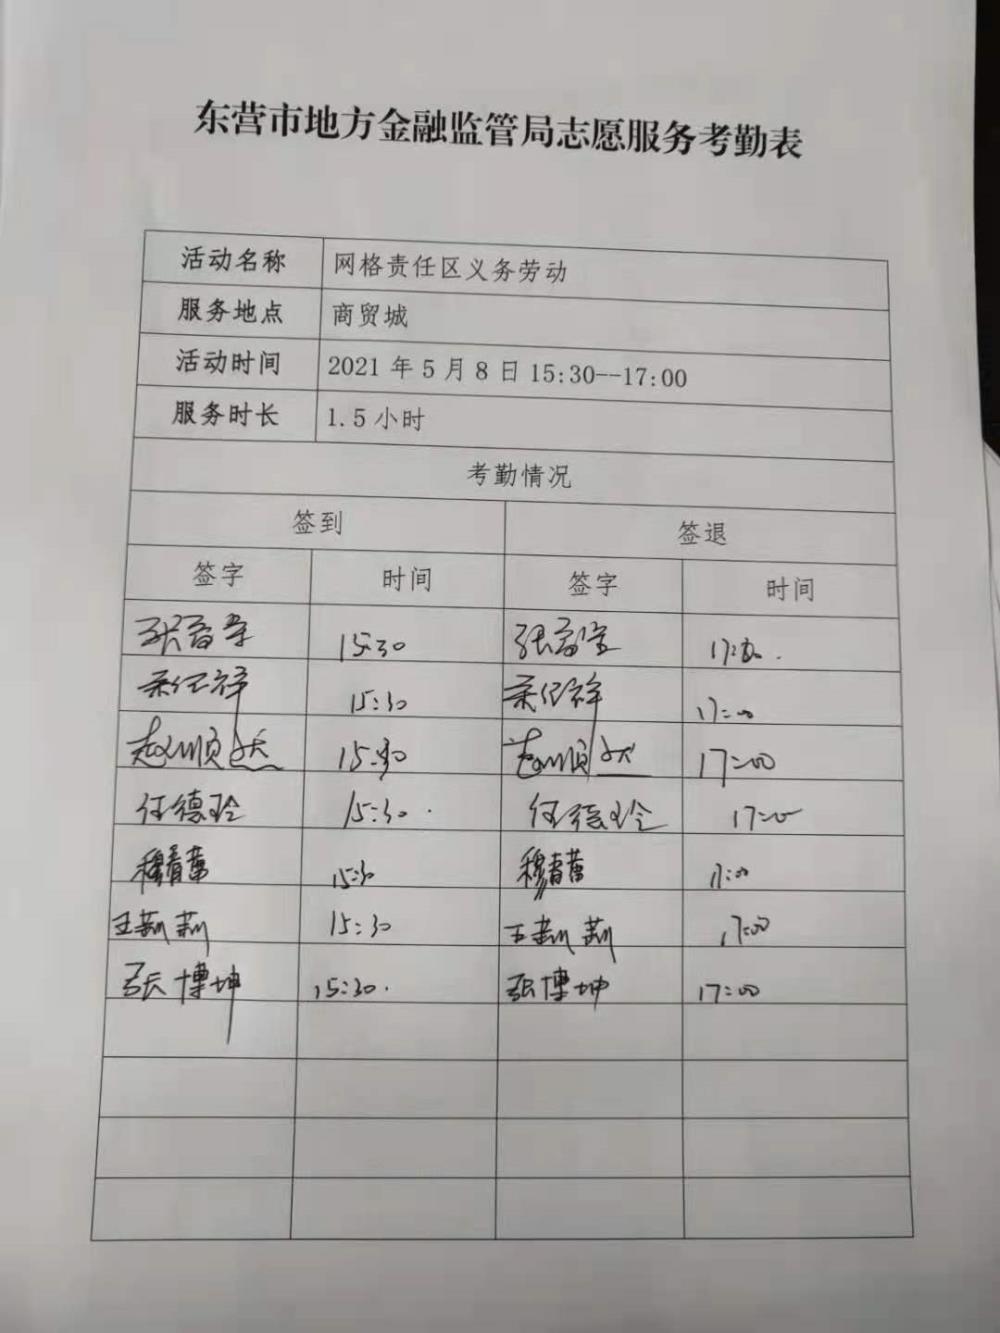 东营市地方金融监管局志愿服务考勤表
活动名称 网格责任区义务劳动
服务地点 商贸城
活动时间 2021 年 5 月 8 日 15:30--17:00
服务时长 1.5 小时
考勤情况
签到 签退
签字 时间 签字 时间
15:30 17:00
15:30 17:00
赵顺 15:30 赵顺 17:00
任德玲 15:30 任德玲 17:00
穆春蕾 15:30 穆春蕾 17:00
王莉莉 15:30 王莉莉 17:00
张博坤 15:30 张博坤 17:00